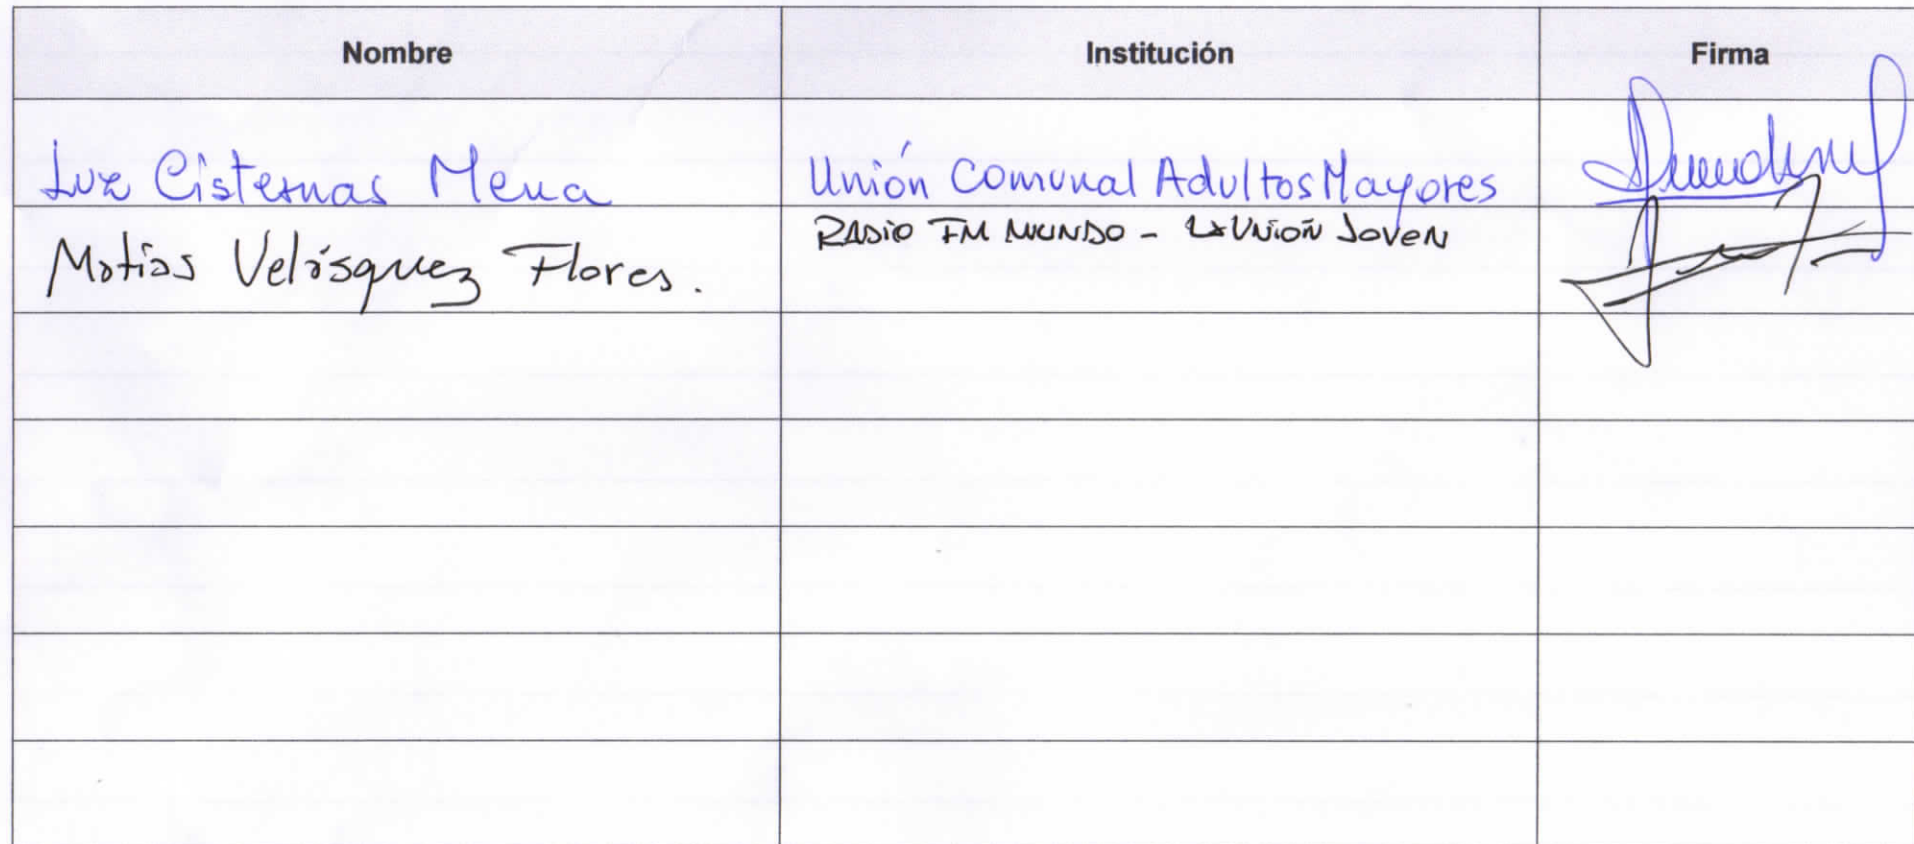 Nombre Institución Firma
Luz Cisternas Mena Unión Comunal Adultos Mayores
Matías Velásquez Flores. RADIO FM MUNDO - LA UNIÓN JOVEN